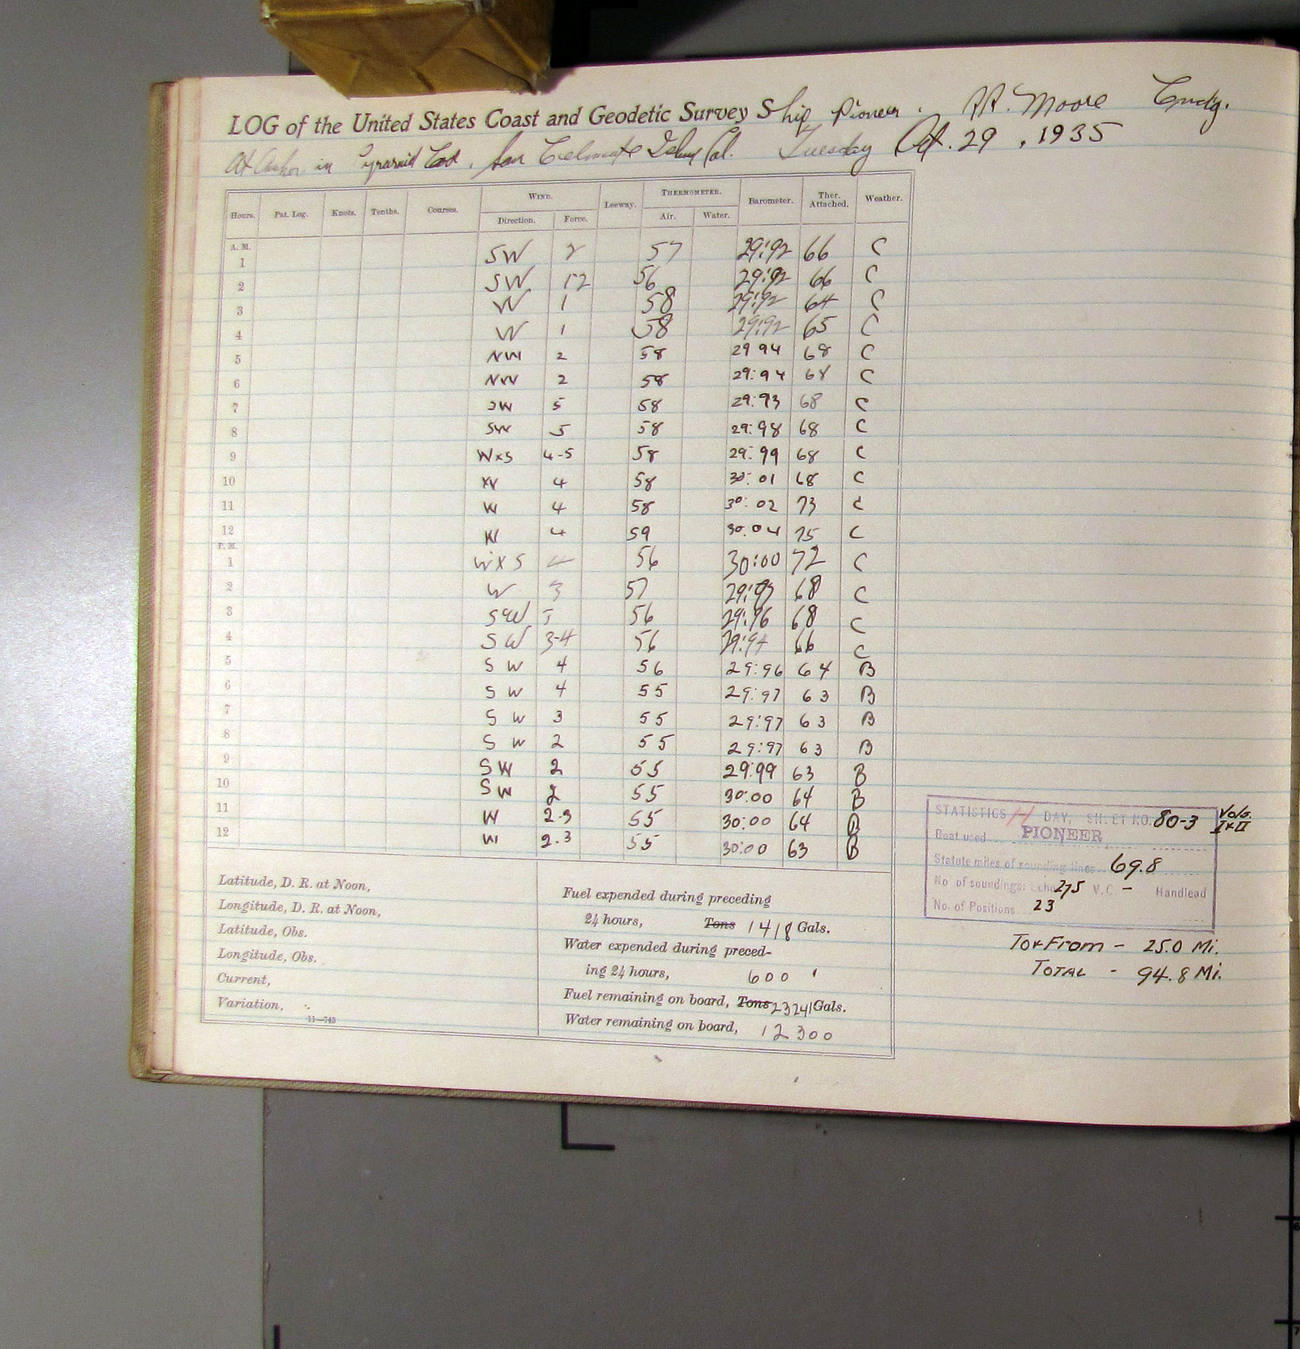 LOG of the United States Coast and Geodetic Survey Ship Pioneer. Moore Cmdg.
At Anchor in Pyramid San Tuesday Oct. 29, 1935
Hours. Pat. Log. Knots. Tenths. Courses. WIND. Leeway. THERMOMETER. Barometer. Ther. Attached. Weather.
Direction. Force. Air. Water.
A. M.
1 SW 2 57 29:92 66 C
2 SW 12 56 29:92 66 C
3 W 1 58 29:92 64 C
4 W 1 58 29:92 65 C
5 NW 2 58 29 94 68 C
6 NW 2 58 29:94 68 C
7 SW 5 58 29:93 68 C
8 SW 5 58 29:98 68 C
9 WxS 4-5 58 29:99 68 C
10 W 4 58 30:01 68 C
11 W 4 58 30:02 73 C
12 W 4 59 30:04 75 C
P. M.
1 WXS 56 30:00 72 C
2 W 3 57 68 C
3 SW 56 29:96 68 C
4 SW 3-4 56 29:94 66 C
5 SW 4 56 29:96 64 B
6 SW 4 55 29:97 63 B
7 SW 3 55 29:97 63 B
8 SW 2 55 29:97 63 B
9 SW 2 55 29:99 63 B
10 SW 2 55 30:00 64 B
11 W 2-3 55 30:00 64 B
12 W 2.3 55 30:00 63 B
STATISTICS H DAY, SHEET NO. 80-3 Vols. I & II
Boat used PIONEER
Statute miles of sounding lines 69.8
No. of soundings: Echo 275 V.C. - Handlead
No. of Positions 23
To & From - 25.0 Mi.
TOTAL - 94.8 Mi.
Latitude, D. R. at Noon,
Longitude, D. R. at Noon,
Latitude, Obs.
Longitude, Obs.
Current,
Variation,
11—745
Fuel expended during preceding
24 hours, Tons 1418 Gals.
Water expended during preced-
ing 24 hours, 600 "
Fuel remaining on board, Tons 23241 Gals.
Water remaining on board, 12300